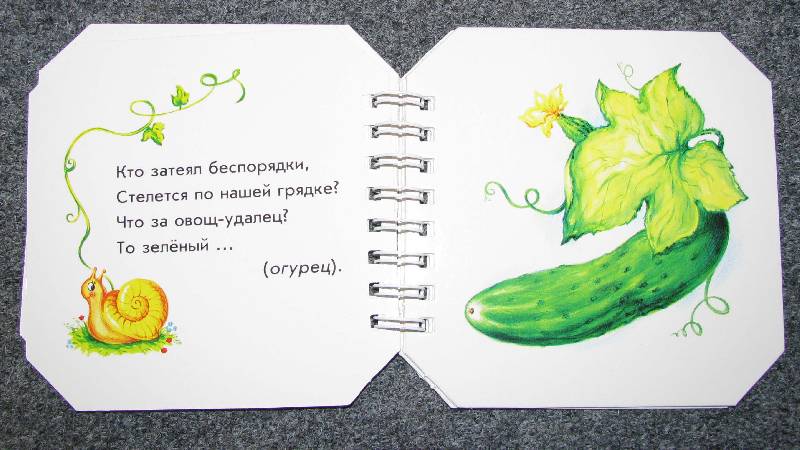 Кто затеял беспорядки,
Стелется по нашей грядке?
Что за овощ-удалец?
То зелёный ...
(огурец).